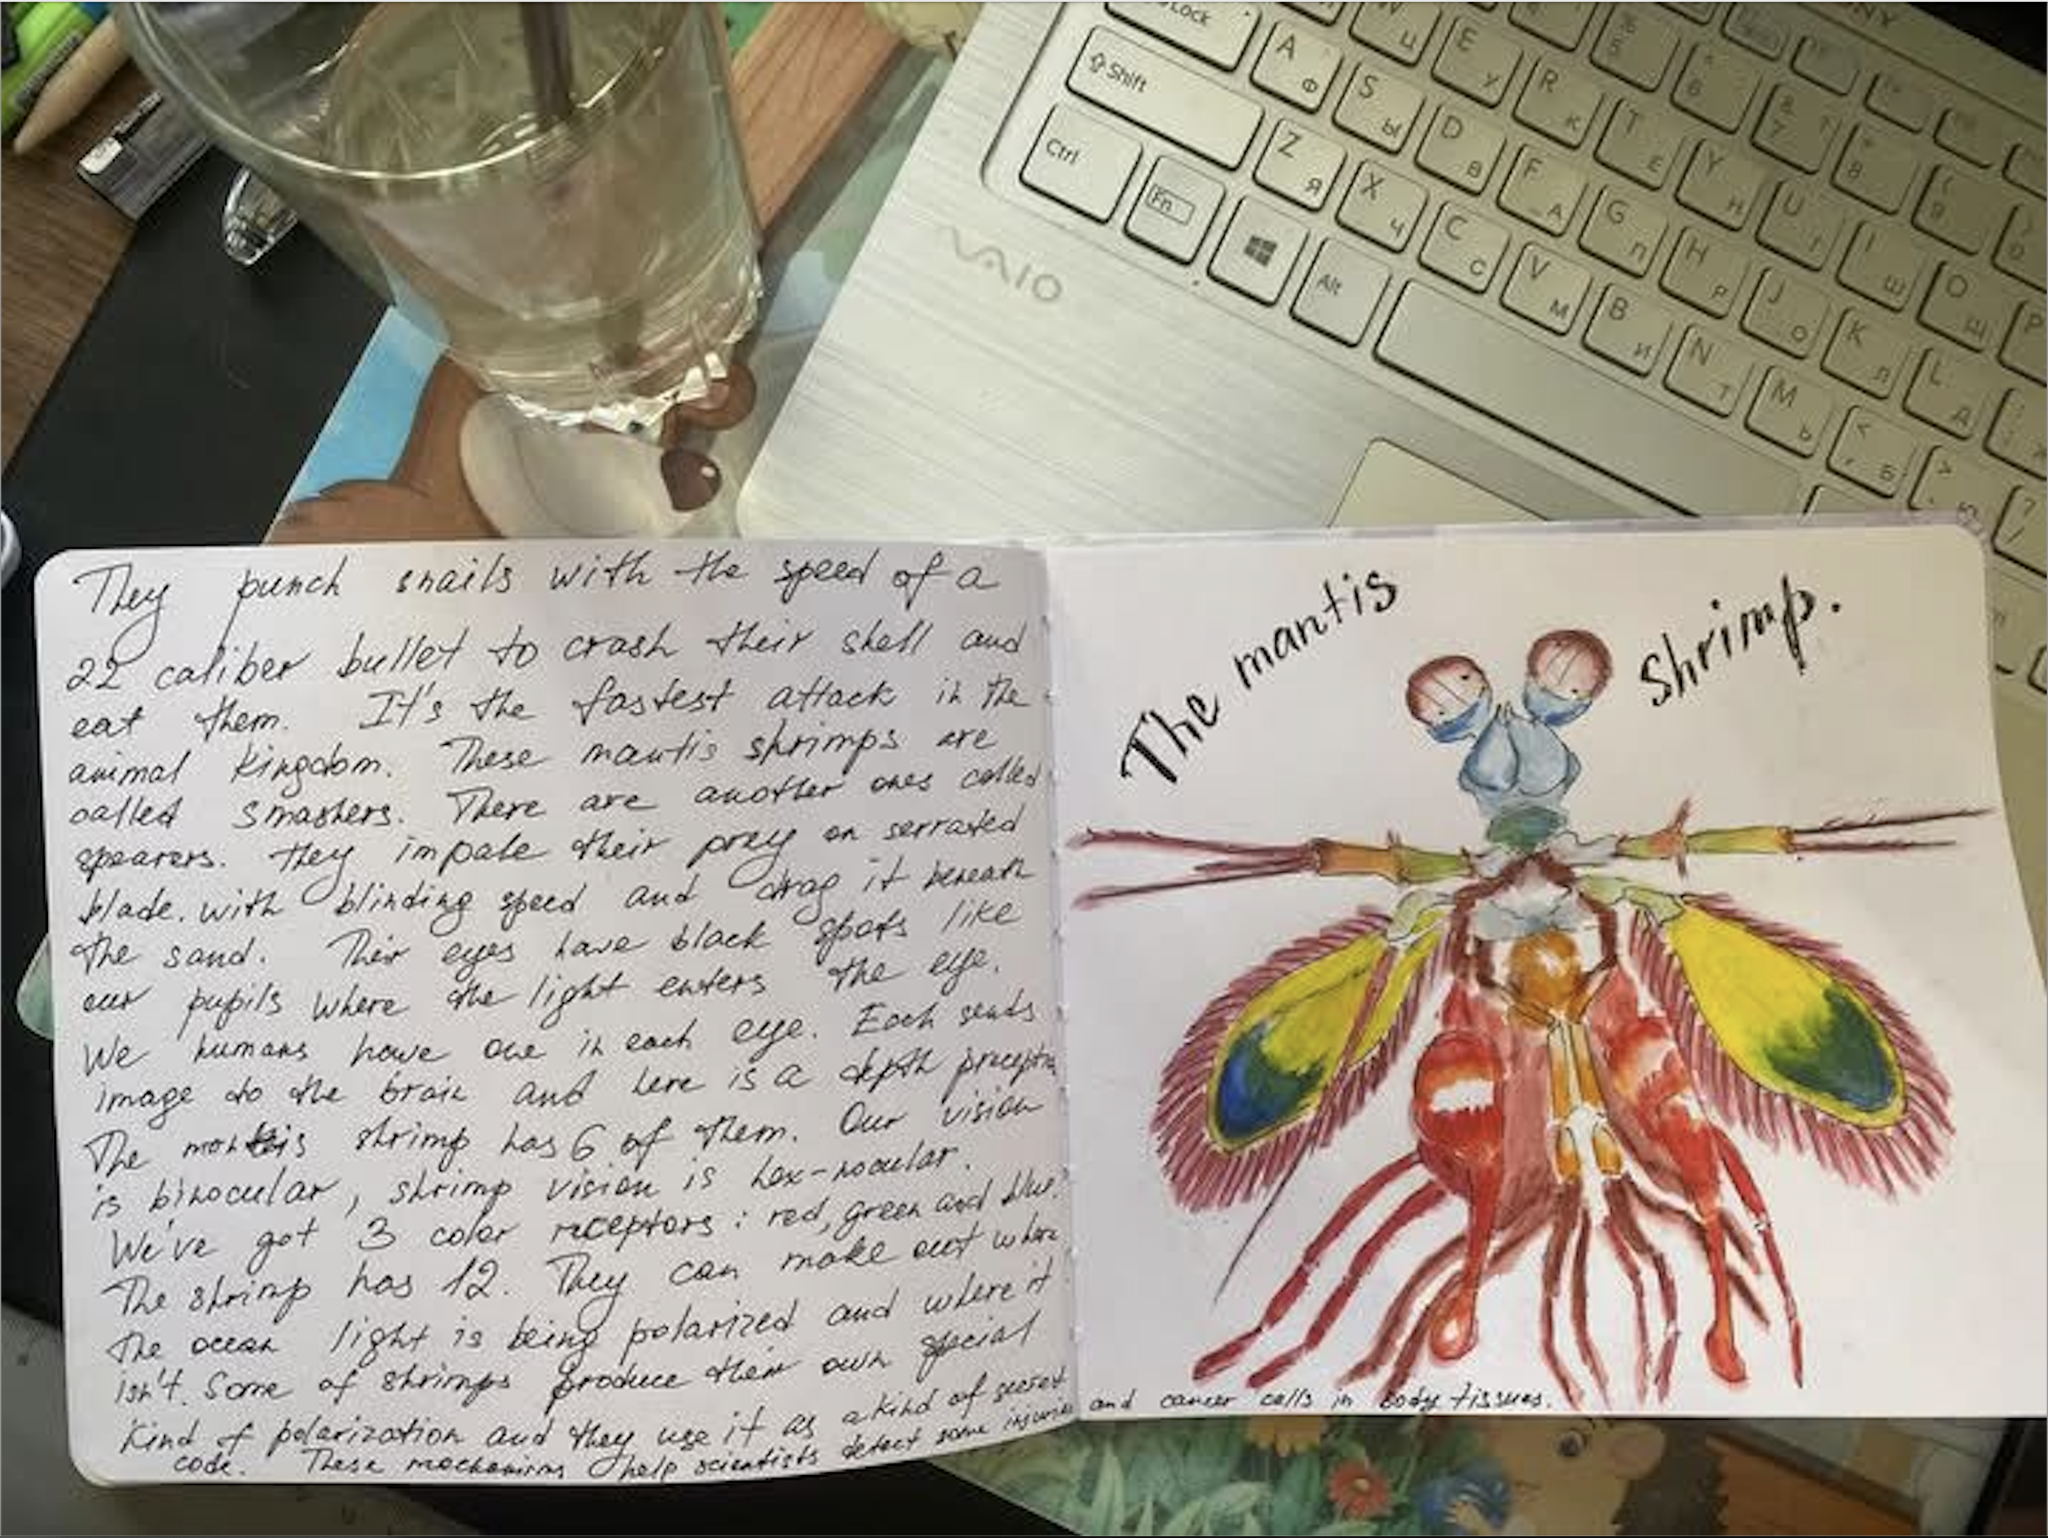 Lock
W Ц
E У
A Ф
Shift
S Ы
R К
T Е
D В
Ctrl
Z Я
F А
Y Н
Fn
X Ч
G П
U Г
C С
H Р
I Ш
Alt
V М
J О
O Щ
B И
K Л
P
N Т
L Д
M Ь
Б
VAIO
They punch snails with the speed of a
22 caliber bullet to crash their shell and
eat them. It's the fastest attack in the
animal kingdom. These mantis shrimps are
called smashers. There are another ones called
spearers. They impale their prey on serrated
blade. with blinding speed and drag it beneath
the sand. Their eyes have black spots like
our pupils where the light enters the eye.
We humans have one in each eye. Each sends
image to the brain and here is a depth preceptio
The mantis shrimp has 6 of them. Our vision
is binocular, shrimp vision is hex-nocular.
We've got 3 color receptors: red, green and blue.
The shrimp has 12. They can make out where
the ocean light is being polarized and where it
isn't. Some of shrimps produce their own special
kind of polarization and they use it as a kind of secret
code. These mechanisms help scientists detect some injuries
The mantis
shrimp.
and cancer cells in body tissues.